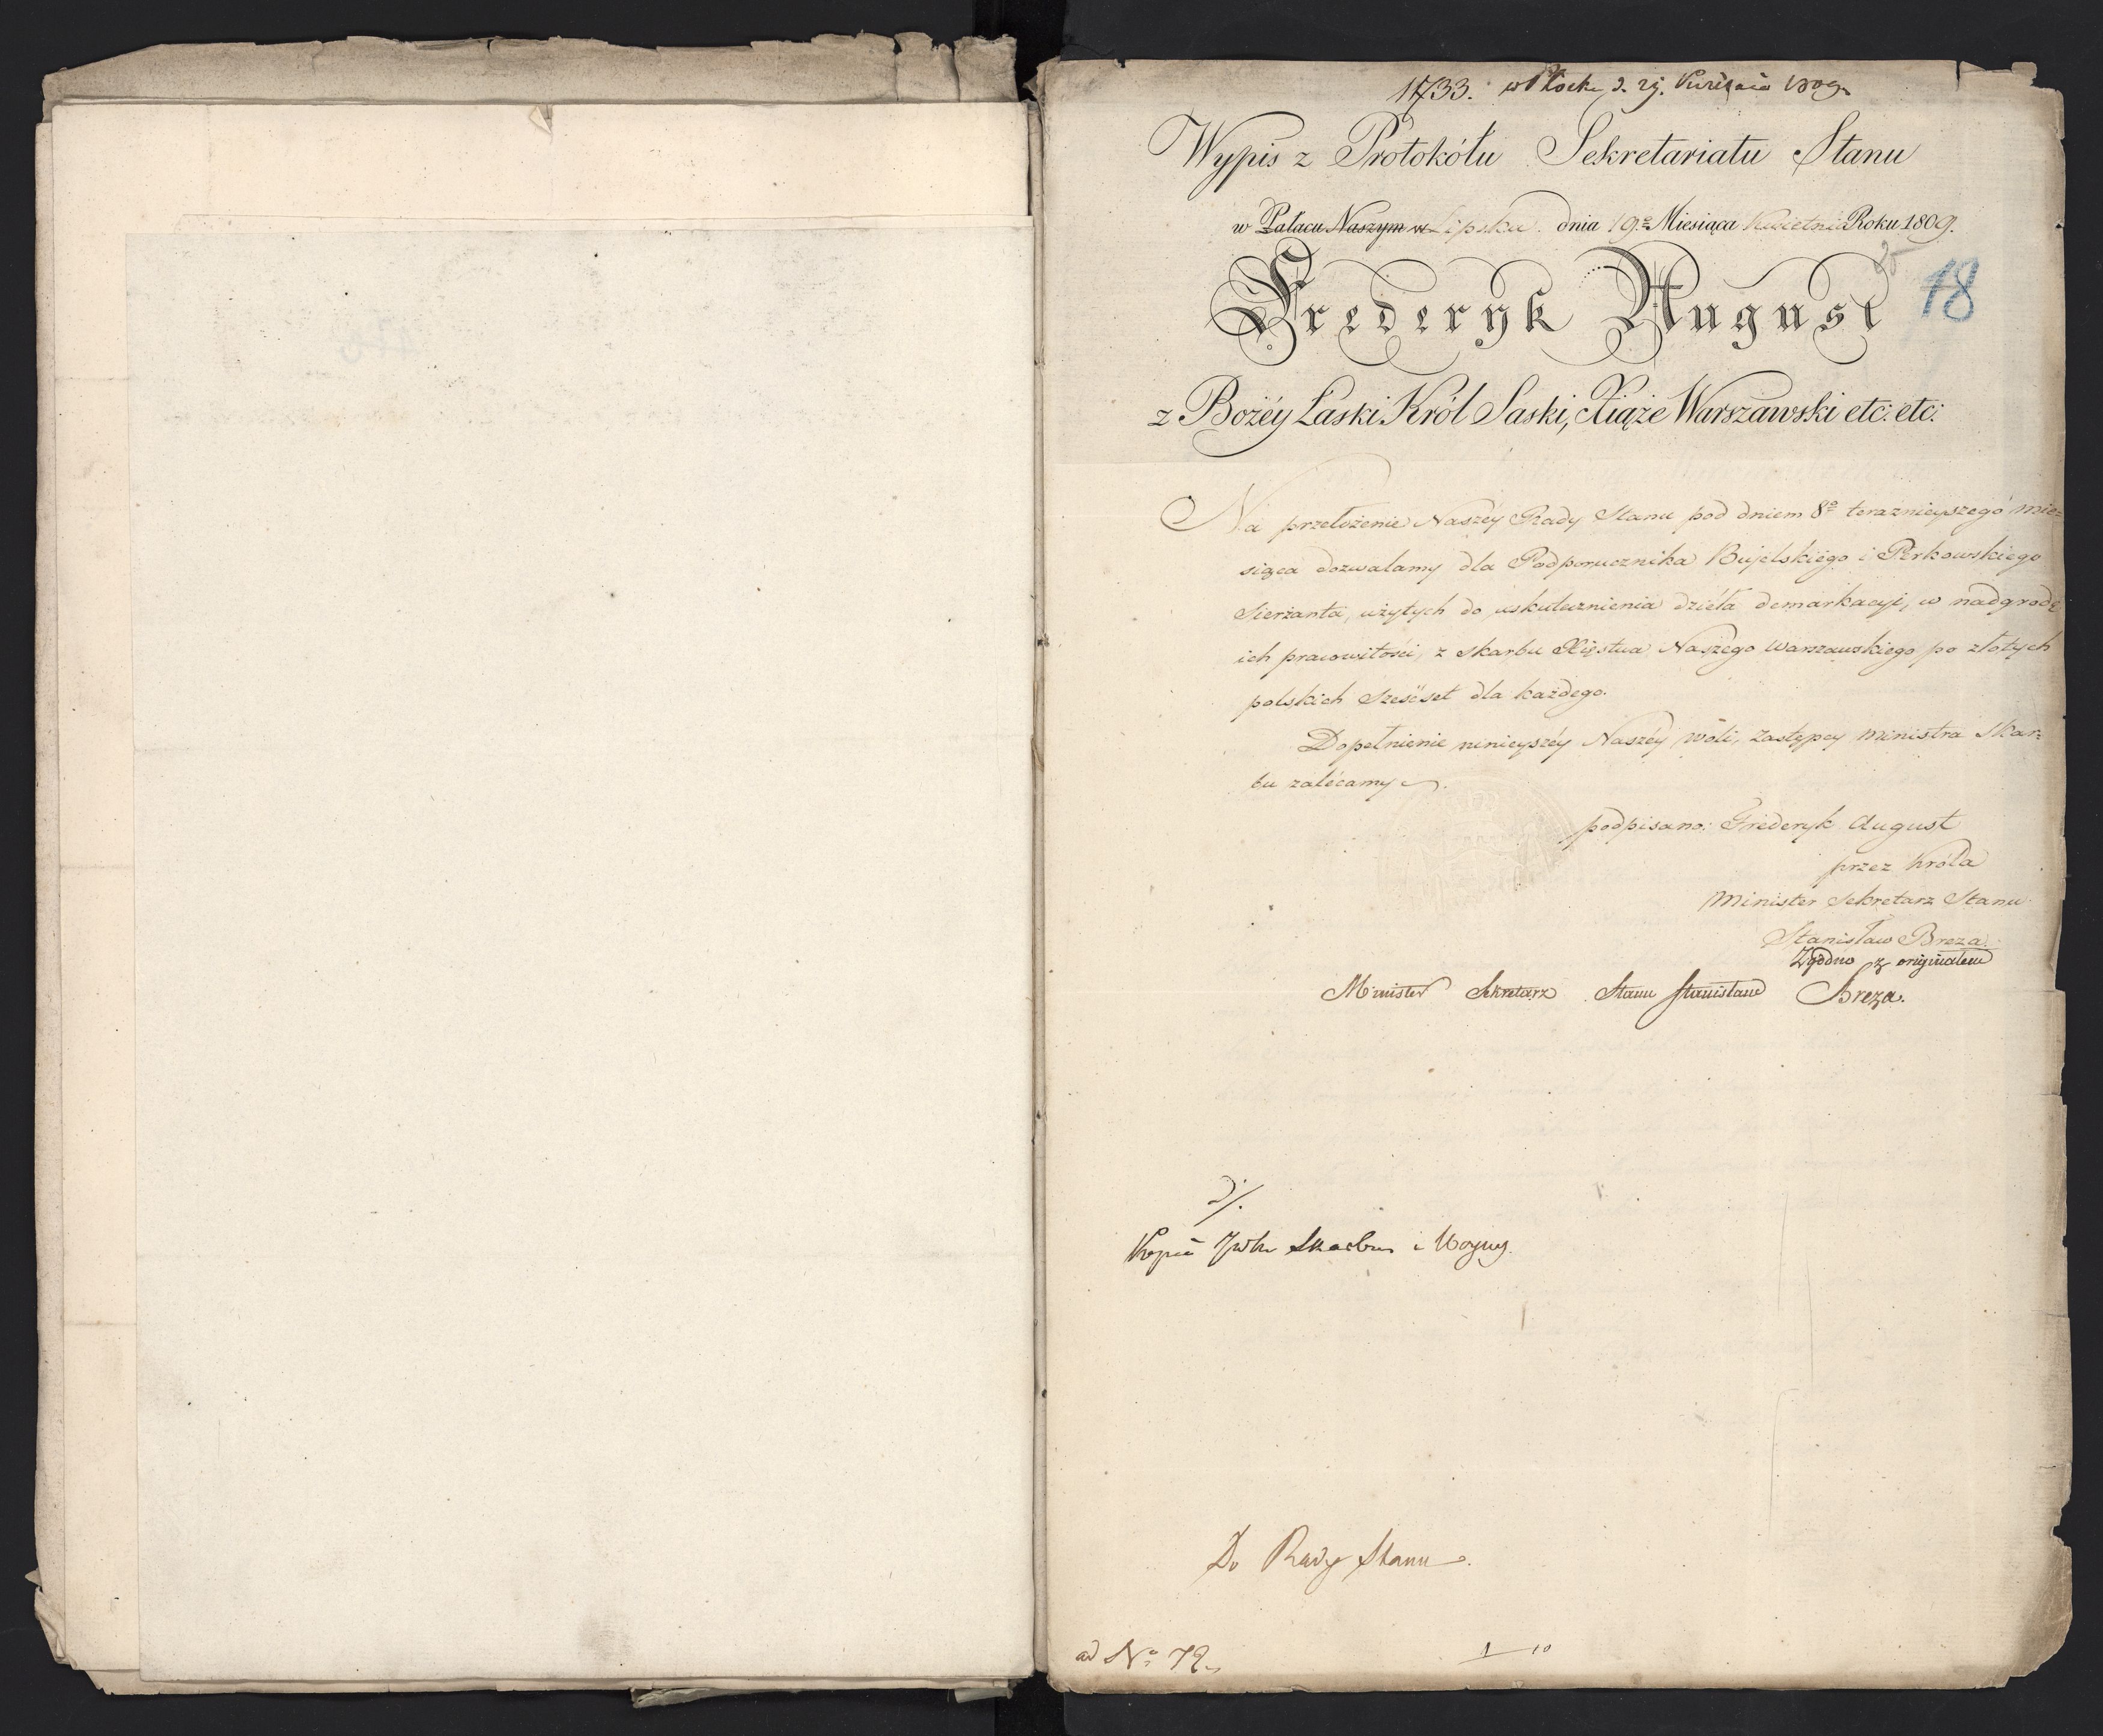 1733. w Płocku d. 29. Kwietnia 1809.
Wypis z Protokółu Sekretariatu Stanu
w Pałacu Naszym w Lipsku dnia 19º Miesiąca Kwietnia Roku 1809.
18
Frederyk August
z Bożéy Łaski Król Saski, Xiąże Warszawski etc: etc:
Na przełożenie Naszéy Rady Stanu pod dniem 8º teraznieyszego mie=
siąca dozwalamy dla Podporucznika Bujelskiego i Perkowskiego
Sierżanta, użytych do uskutecznienia dzieła demarkacyi, w nadgrodę
ich pracowitości, z skarbu Xięstwa Naszego Warszawskiego po złotych
polskich sześćset dla każdego.
Dopełnienie ninieyszéy Naszéy wóli, zastępcy ministra skar=
bu zalécamy.
podpisano: Frederyk August
przez Króla
Minister Sekretarz Stanu
Stanisław Breza.
Zgodno z oryginałem
Minister Sekretarz Stanu Stanisław Breza.
Kopia Skarbu i Woyny.
Do Rady Stanu.
ad Nº 72.
1 10